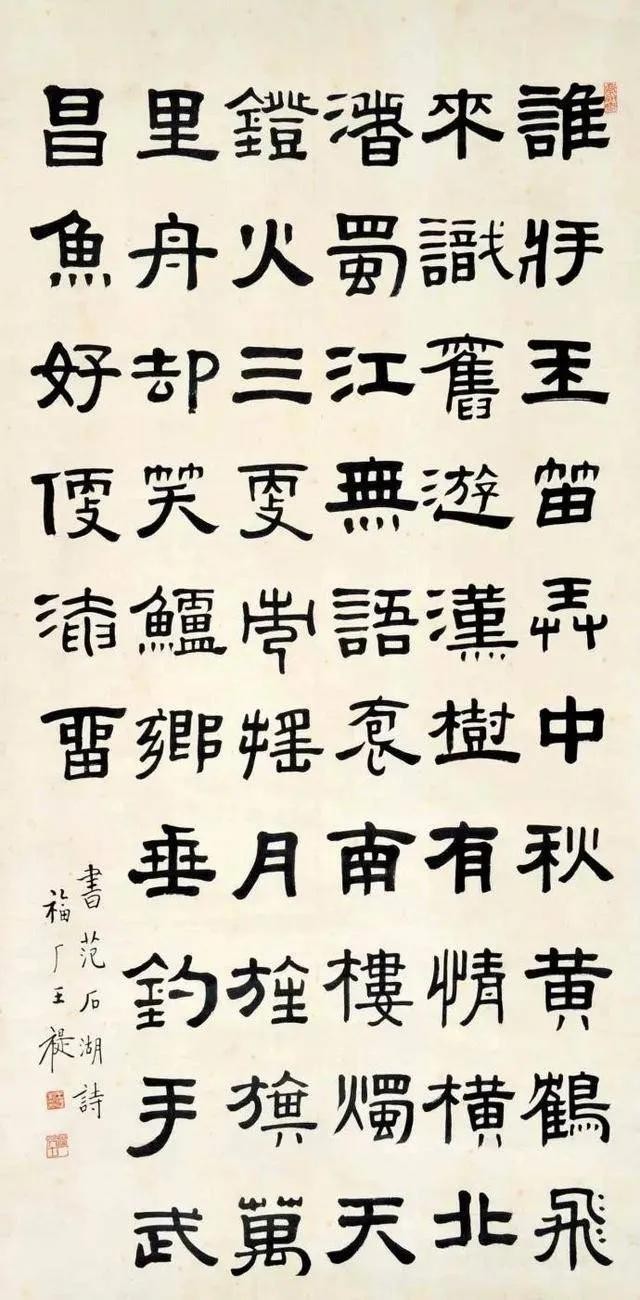 誰將玉笛弄中秋黄鶴飛
來識舊遊漢樹有情橫北
渚蜀江無語袌南樓燭天
鐙火三更市搖月旌旗萬
里舟却笑鱸鄉垂釣手武
昌魚好便淹留
書范石湖詩
福厂王禔